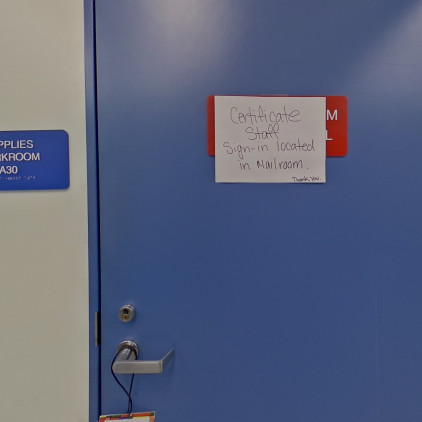 PPLIES
RKROOM
A30
Certificate
Staff
Sign-in located
in Mailroom.
Thank You.
M
L